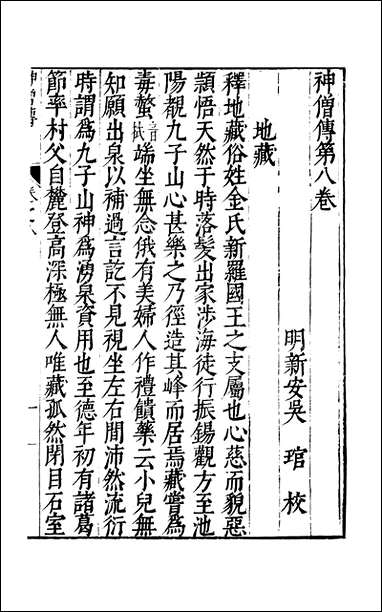 神僧傳第八卷
明新安吳琯校
地藏
釋地藏俗姓金氏新羅國王之支屬也心慈而貌惡
頴悟天然于時落髮出家涉海徒行振錫觀方至池
陽覩九子山心甚樂之乃徑造其峰而居焉藏嘗為
毒螫端坐無念俄有美婦人作禮饋藥云小兒無
知願出泉以補過言訖不見視坐左右間沛然流衍
時謂為九子山神為湧泉資用也至德年初有諸葛
節率村父自麓登高深極無人唯藏孤然閉目石室